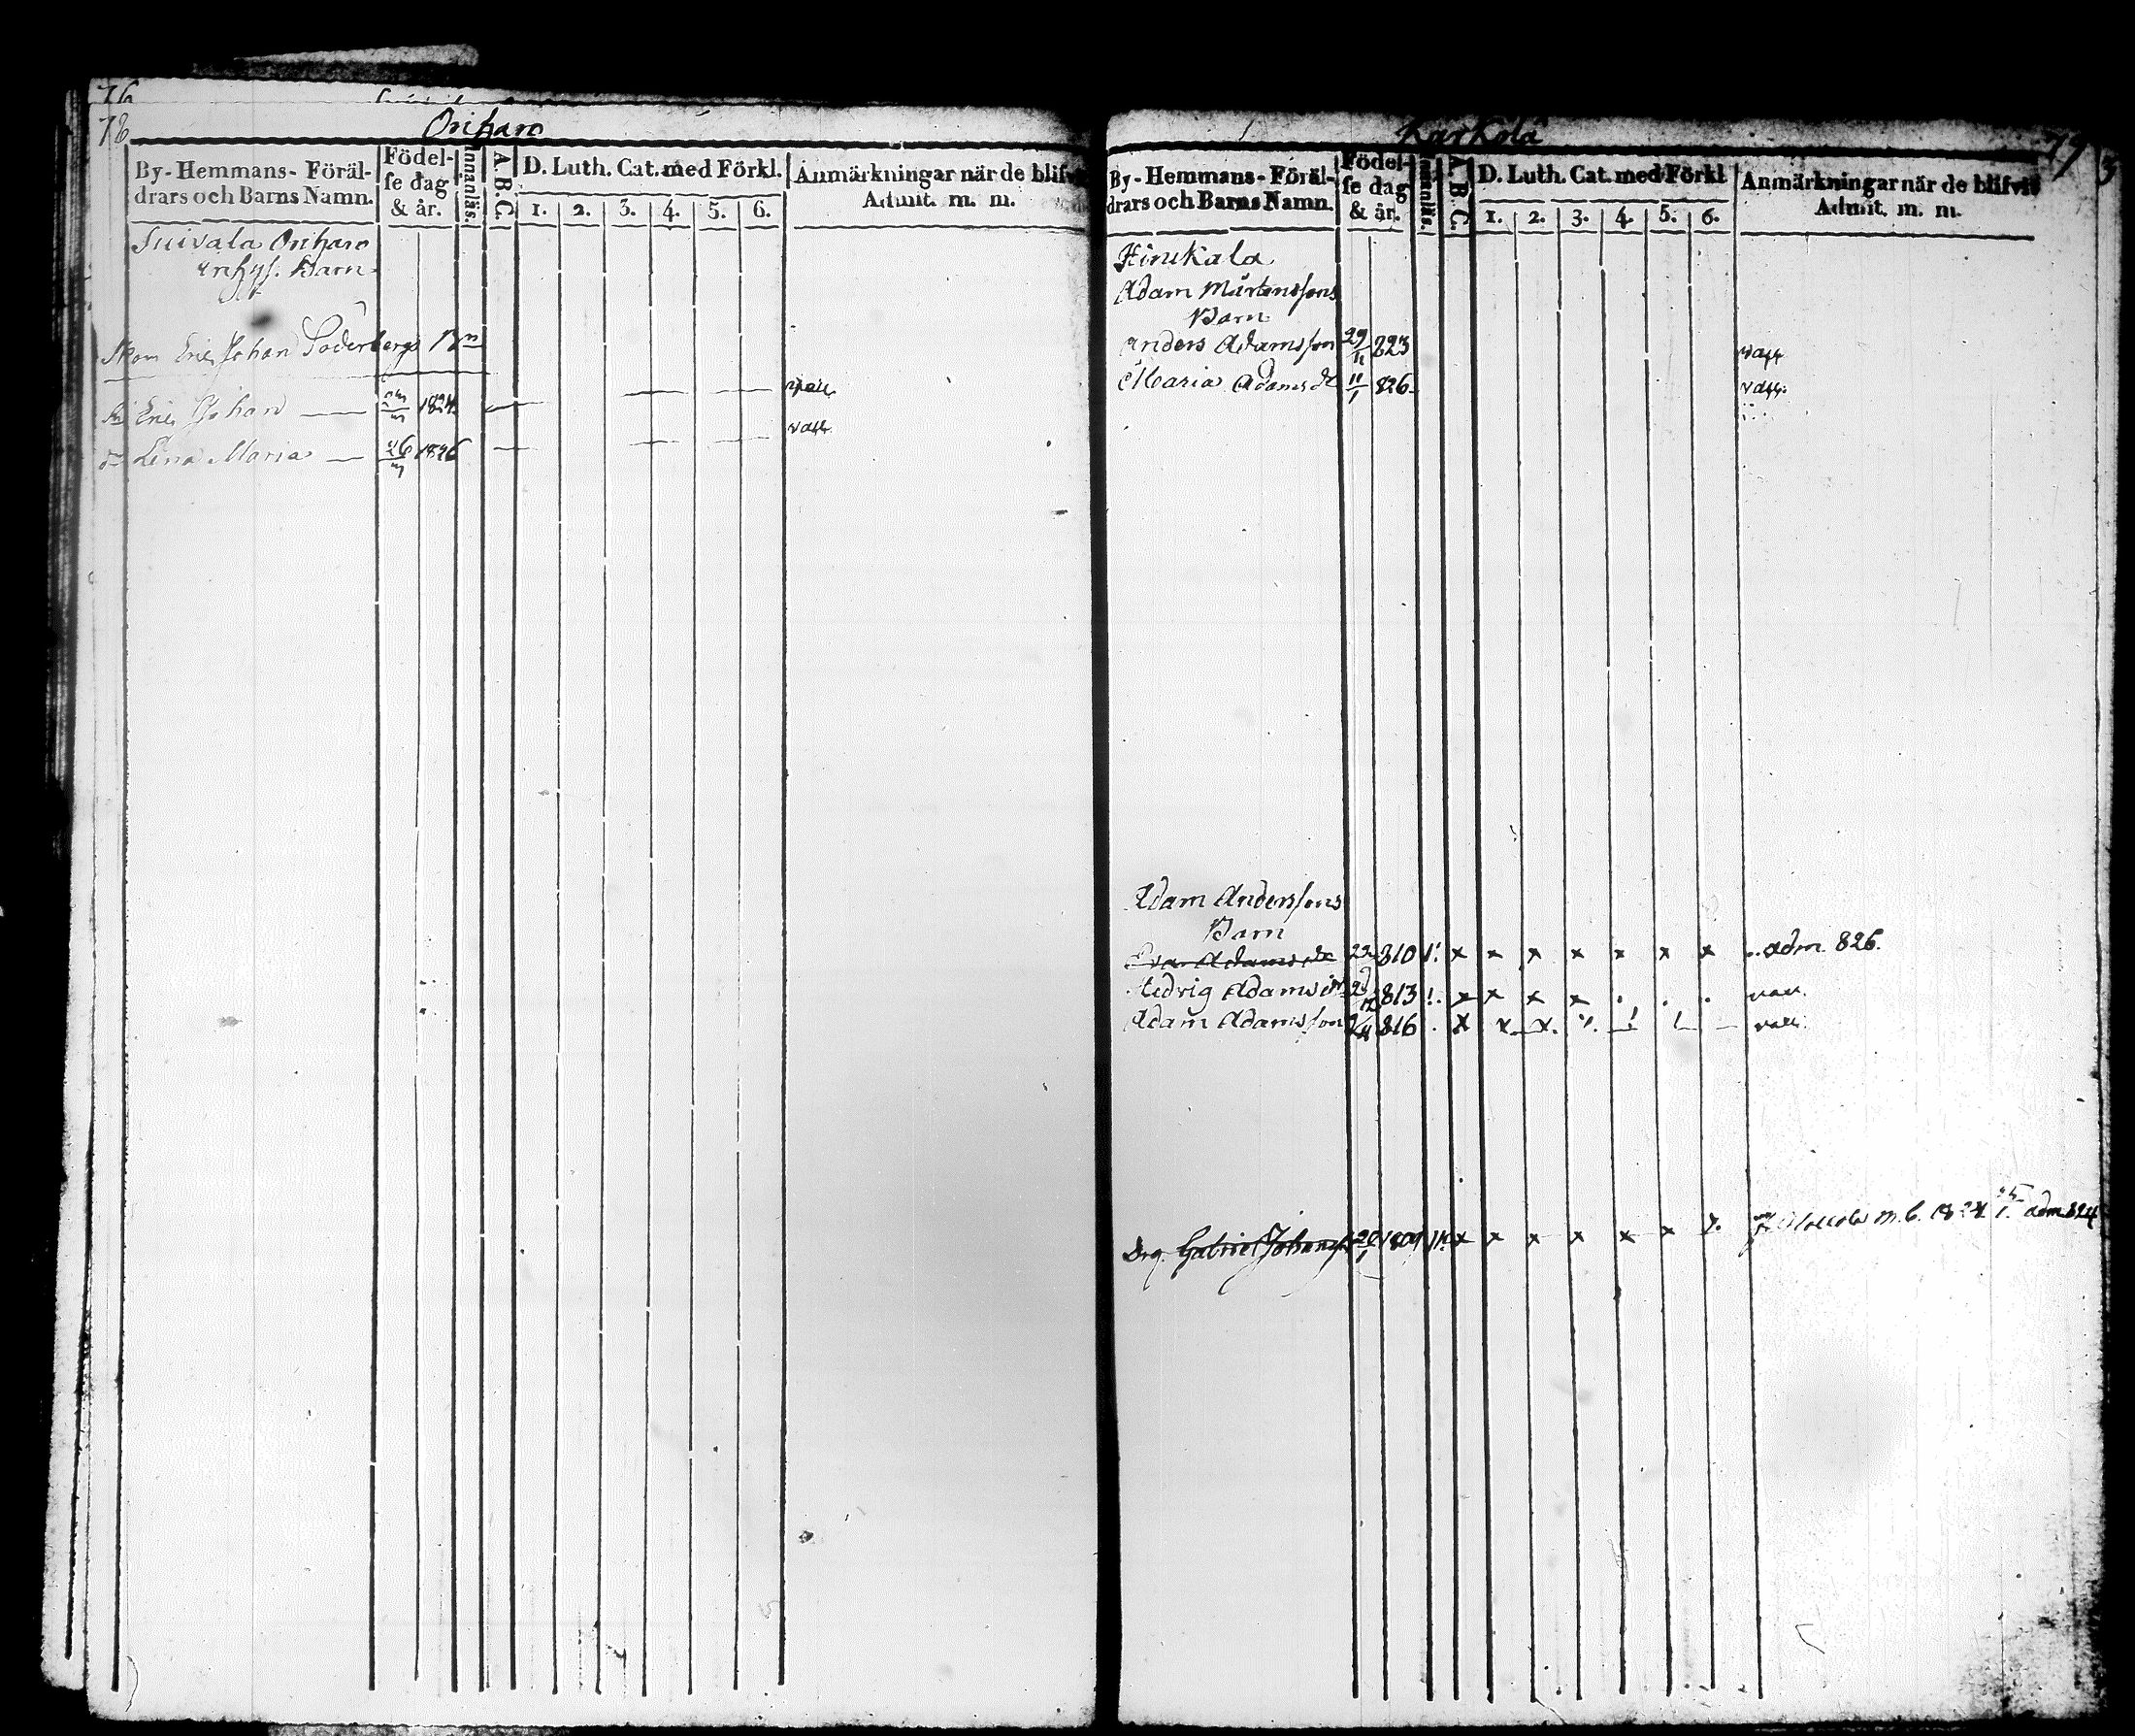 76
78
Oriharo
By-Hemmans-Föräl-
drars och Barns Namn.
Födel-
se dag
& år.
Innanläs.
A. B. C.
D. Luth. Cat. med Förkl.
1. 2. 3. 4. 5. 6.
Anmärkningar när de blifvit
Admit. m. m.
Suivala Oriharo
Barn
Eric Johan Söderbergs Bn
Eric Johan 1824
vacc.
Lena Maria 26/3 1826
vacc.
Karkola
79
3
By-Hemmans-Föräl-
drars och Barns Namn.
Födel-
se dag
& år.
Innanläs.
A. B. C.
D. Luth. Cat. med Förkl
1. 2. 3. 4. 5. 6.
Anmärkningar när de blifvit
Admit. m. m.
Hirsikala
Adam Mårtenssons
Barn
Anders Adamsson 29/11 823 vacc
Maria Adamsdr 11/1 826 vacc.
Adam Anderssons
Barn
Eva Adamsdr 22 810 x x x x x x x adm. 826.
Hedvig Adamsdr 813 x x x x vacc.
Adam Adamsson 816 x x x vacc.
Drg. Gabriel Johanss 20/1 1809 x x x x x x m.b. 1824 adm 824